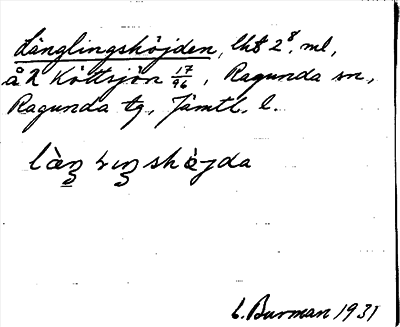 Länglingshöjden, lht 2⁸, ml,
å R Köttsjön 17/96, Ragunda sn,
Ragunda tg, Jämtl. l.
làŋ lıŋshöjda
C. Burman 1931